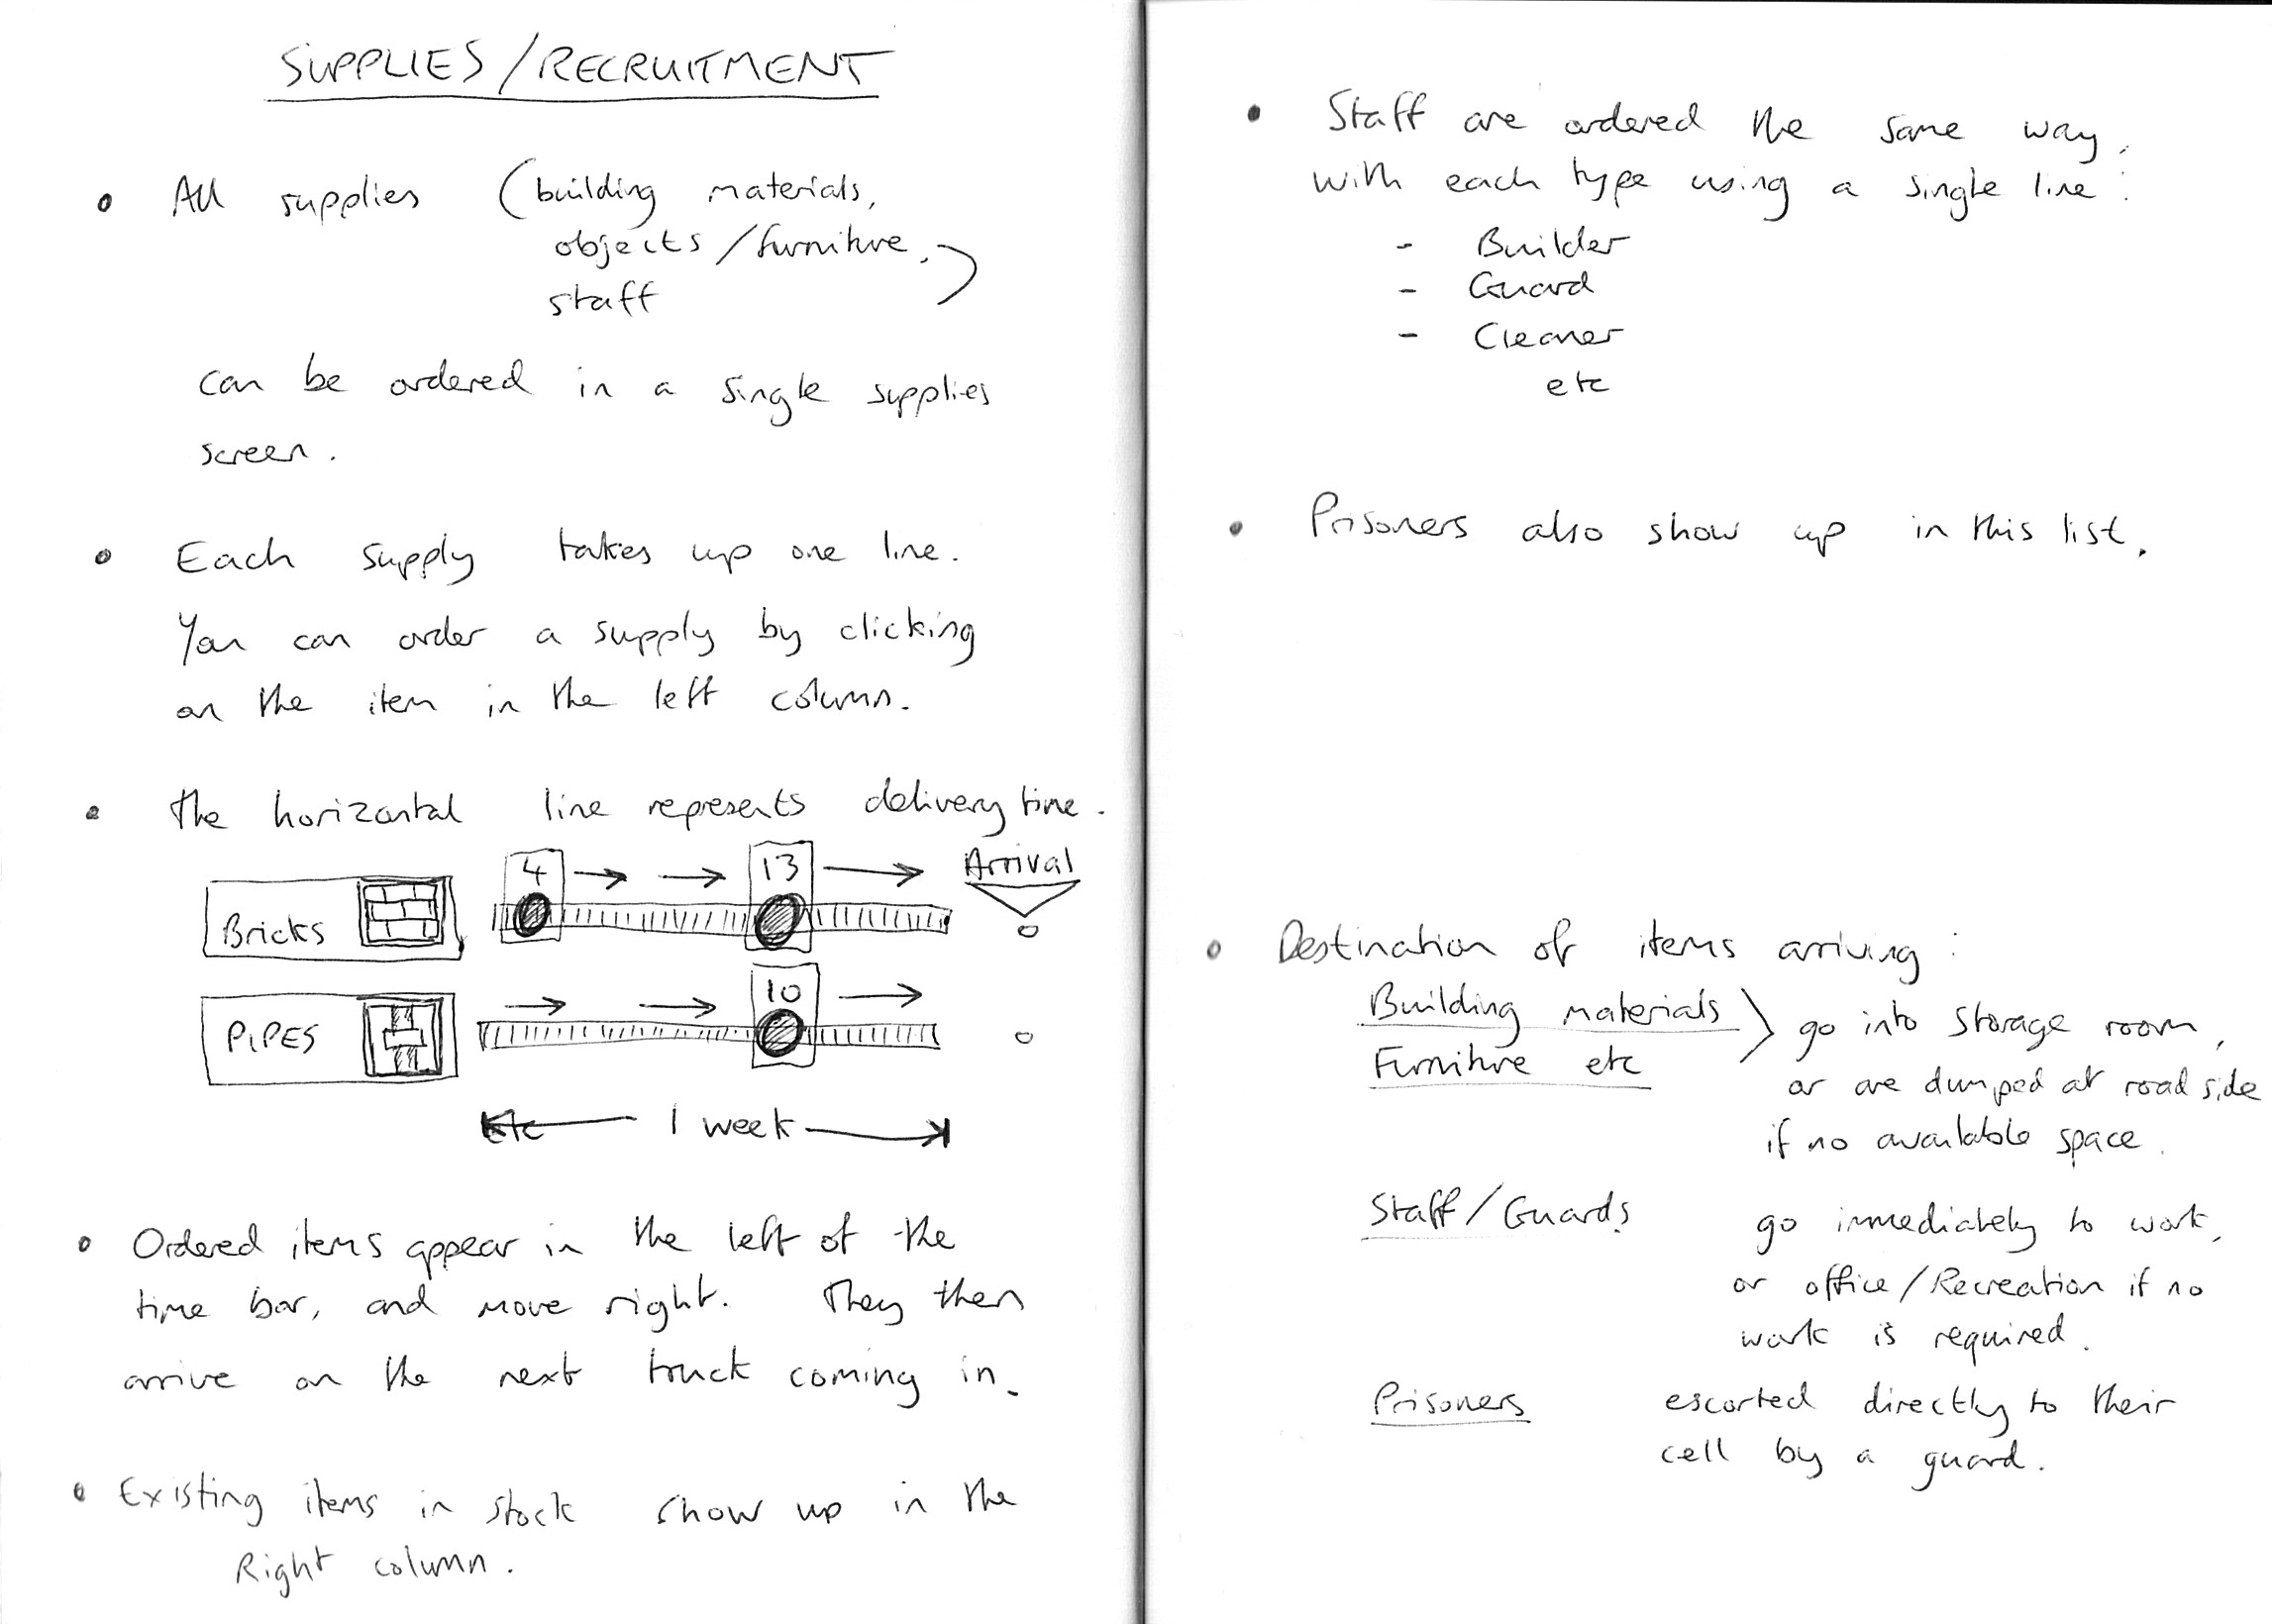 SUPPLIES/RECRUITMENT
• All supplies (building materials,
objects/furniture,)
staff
can be ordered in a single supplies
screen.
• Each supply takes up one line.
You can order a supply by clicking
on the item in the left column.
• The horizontal line represents delivery time.
4 13 Arrival
Bricks 0
10
PIPES 0
Etc 1 week
• Ordered items appear in the left of the
time bar, and move right. They then
arrive on the next truck coming in.
• Existing items in stock show up in the
Right column.
• Staff are ordered the same way,
with each type using a single line:
- Builder
- Guard
- Cleaner
etc
• Prisoners also show up in this list.
• Destination of items arriving:
Building materials go into storage room,
Furniture etc or are dumped at road side
if no available space.
Staff/Guards go immediately to work,
or office/Recreation if no
work is required.
Prisoners escorted directly to their
cell by a guard.